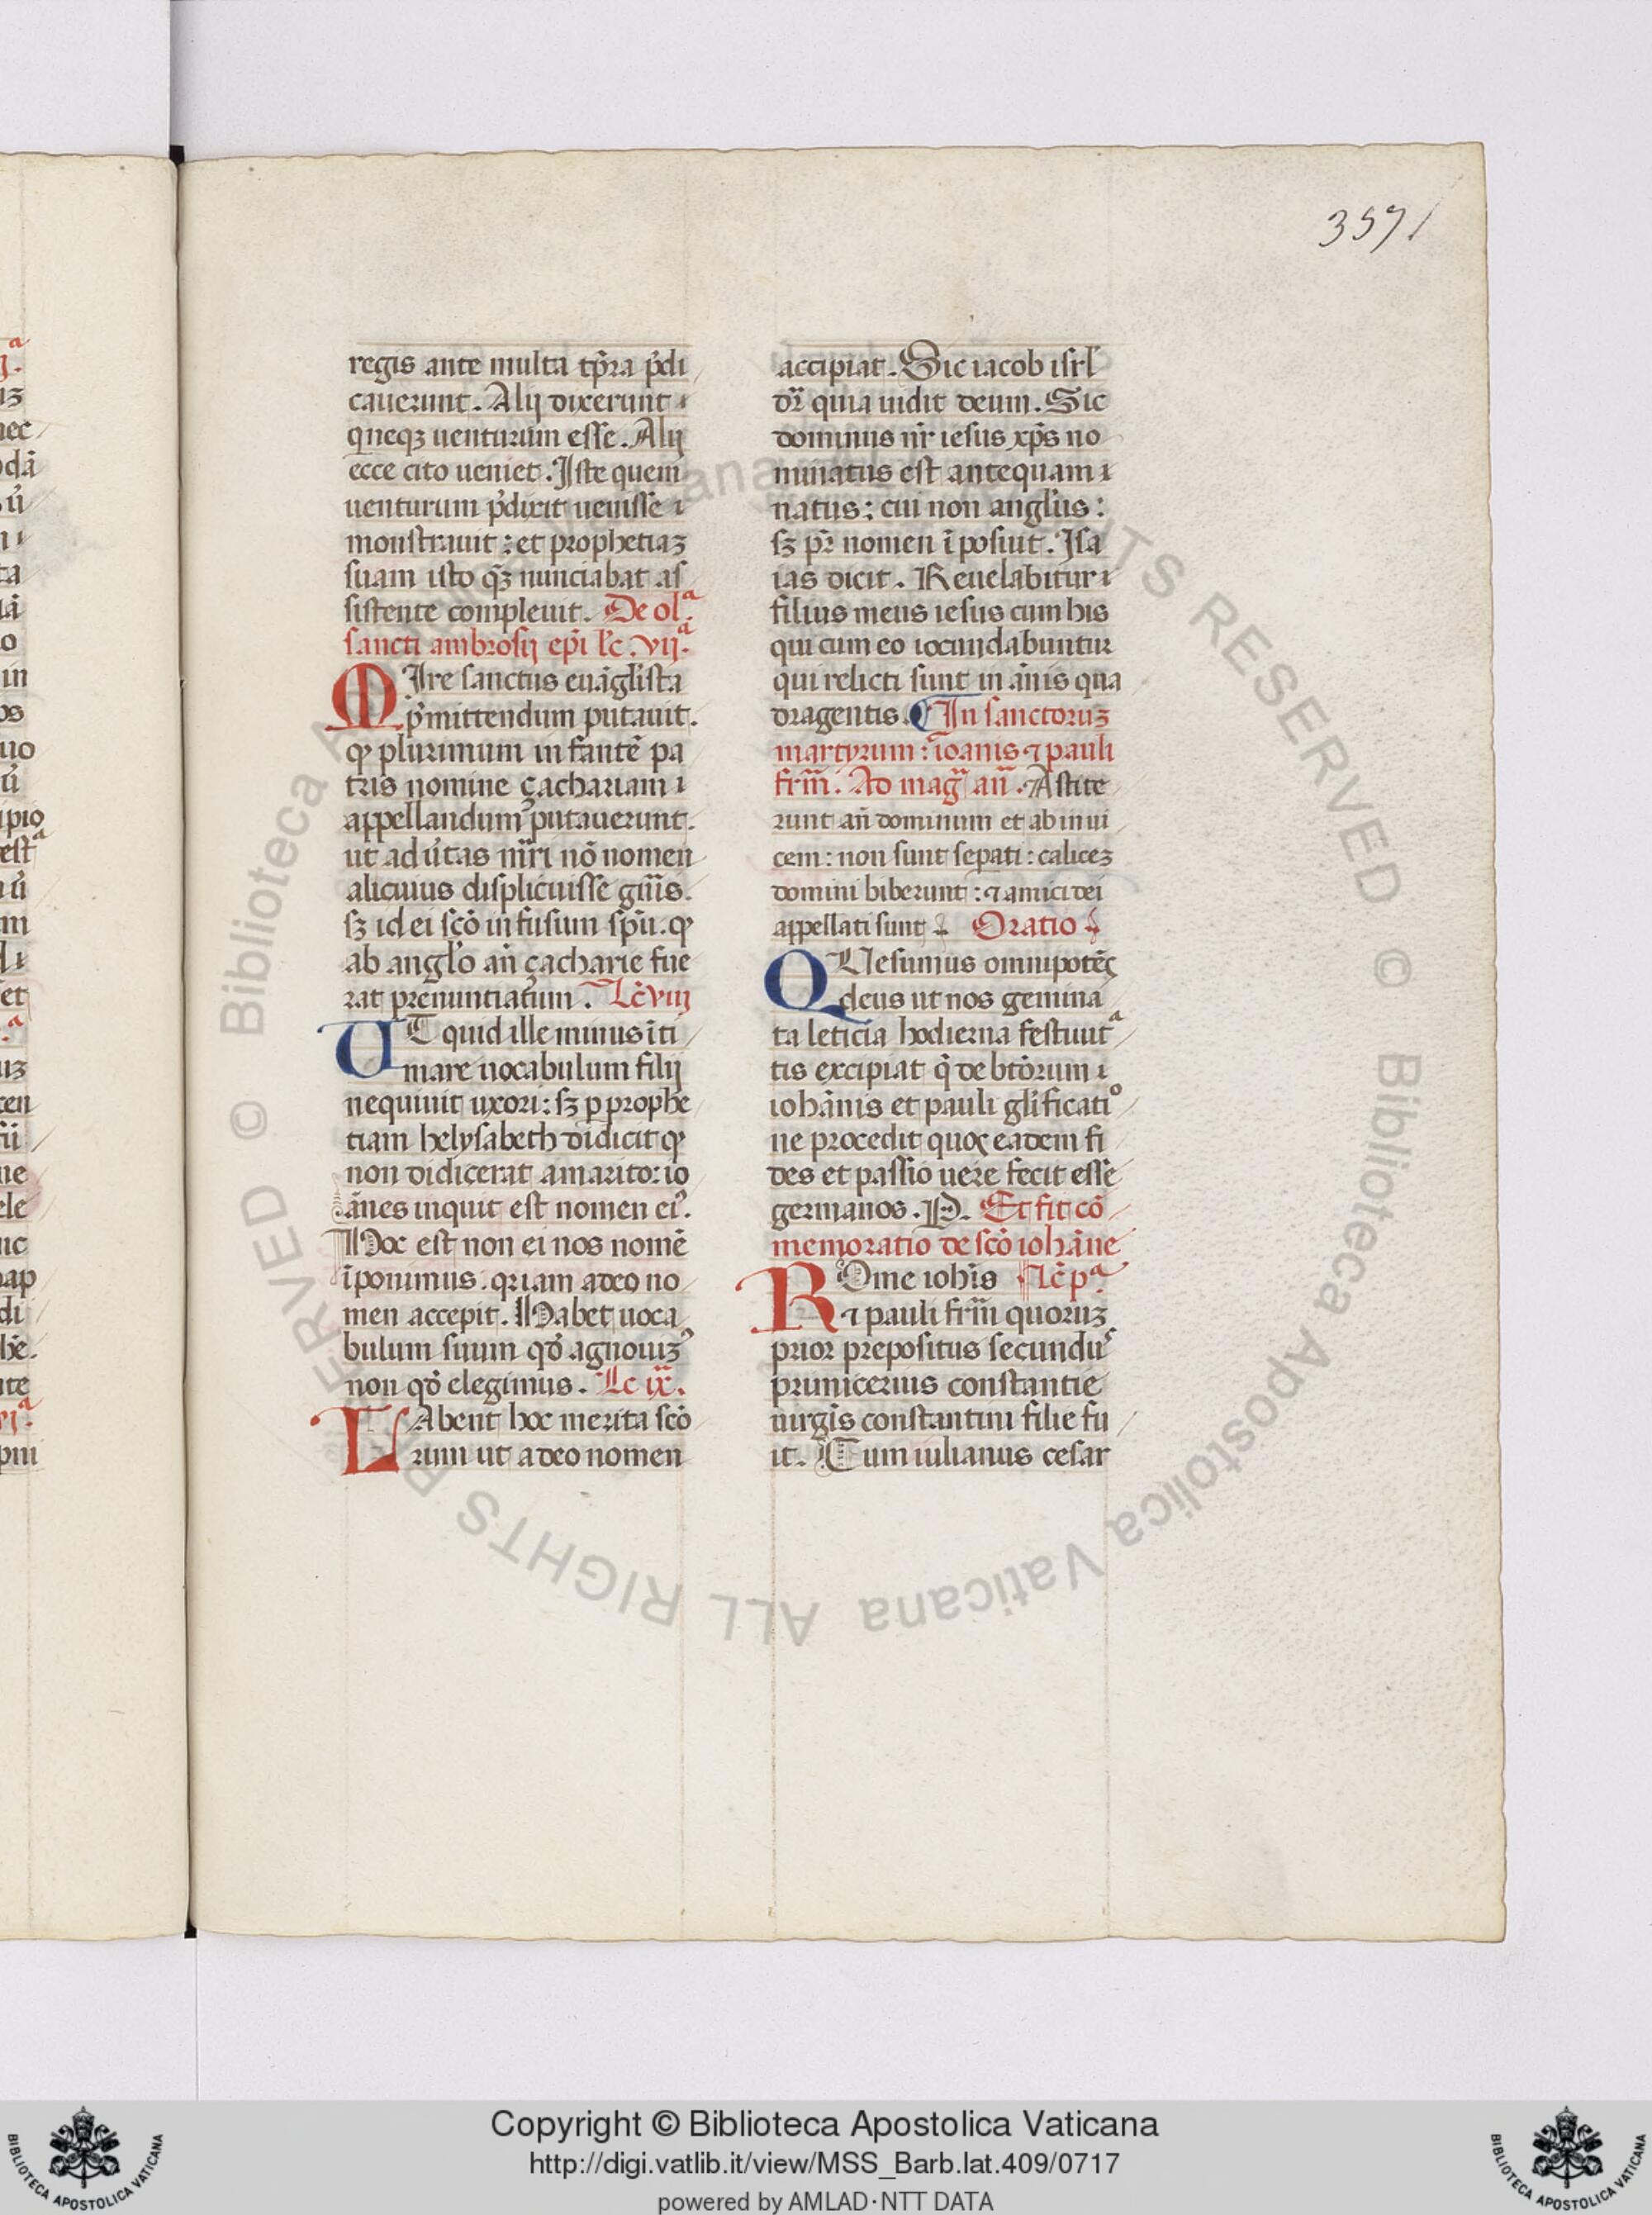 3571
regis ante multa tp̄ra p̄di
cauerunt. Alij dixerunt
qneqꝫ uenturum esse. Alij
ecce cito ueniet. Iste quem
uenturum p̄dixit uenisse
monstrauit: et prophetiaꝫ
suam isto qꝫ nunciabat as
sistente compleuit. De olᵃ.
sancti ambrosij ep̄i lc̄. vijᵃ.
MIre sanctus euāglista
p̄mittendum putauit.
qꝙ plurimum infantē pa
tris nomine çachariam
appellandum putauerunt.
ut ad ũtas nr̄i nō nomen
alicuius displicuisse gn̄is.
sꝫ id ei scō infusum spū. qꝙ
ab anglo an̄ çacharie fue
rat prenuntiatum. Lc̄ viij
UT quid ille minus īti
mare uocabulum filij
nequiuit uxori: sꝫ p prophe
tiam helysabeth didicit qꝙ
non didicerat amarito: io
ānes inquit est nomen ei᾽.
Hoc est non ei nos nomē
īponimus. qiam adeo no
men accepit. Habet uoca
bulum suum qd̄ agnouiꝫ᾽
non qd̄ elegimus. Lc ix.
HAbent hoc merita scō
rum ut adeo nomen
accipiat. Sic iacob isrl̄
dr̄ quia uidit deum. Sic
dominus nr̄ iesus xp̄s no
minatus est antequam
natus: cui non anglus:
sꝫ pr̄ nomen īposuit. Isa
ias dicit. Reuelabitur
filius meus iesus cum his
qui cum eo iocundabuntur
qui relicti sunt in ānis qua
dragentis. In sanctoruꝫ
martyrum: ioanis ⁊ pauli
frm̄. Ad maḡ an̄. Astite
runt an̄ dominum et ab inui
cem: non sunt sepati: caliceꝫ
domini biberunt: ⁊ amici dei
appellati sunt Oratio
QUesumus omnipotēs
deus ut nos gemina
ta leticia hodierna festiuitᵃ
tis excipiat q̄ de btōrum
iohānis et pauli glificatiᵒ
ne procedit quos eadem fi
des et passio uere fecit esse
germanos. P. Et fit cō
memoratio de scō iohāne
ROme iohīs Lc̄ pᵃ
⁊ pauli frm̄ quoruꝫ
prior prepositus secundu᾽
primicerius constantie
uirgis constantini filie fu
it. Tum iulianus cesar
Copyright © Biblioteca Apostolica Vaticana
http://digi.vatlib.it/view/MSS_Barb.lat.409/0717
powered by AMLAD·NTT DATA
BIBLIOTECA APOSTOLICA VATICANA
BIBLIOTECA APOSTOLICA VATICANA
© Biblioteca Apostolica Vaticana ALL RIGHTS RESERVED © Biblioteca Apostolica Vaticana ALL RIGHTS RESERVED